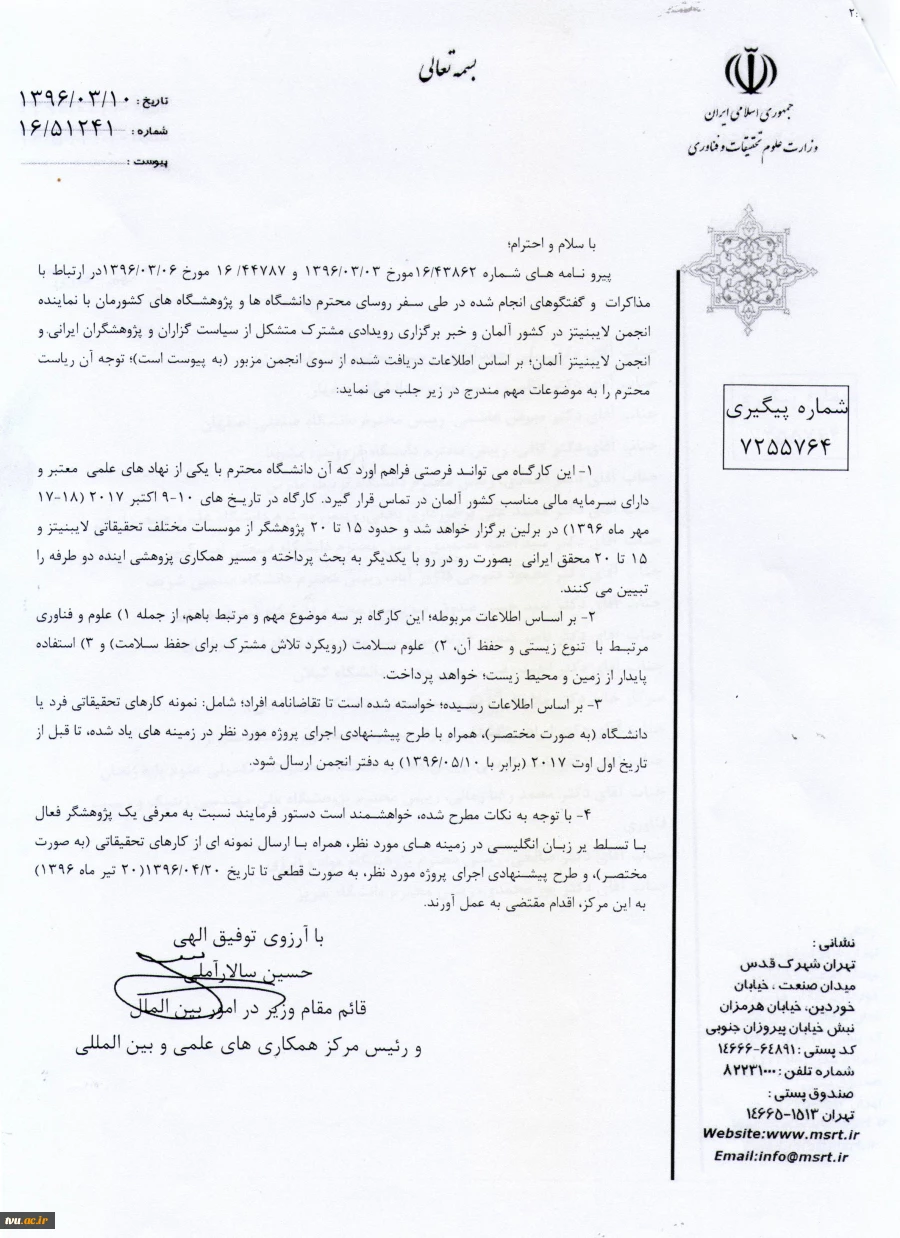 ۲:
بسمه تعالی
جمهوری اسلامی ایران
وزارت علوم تحقیقات و فناوری
تاریخ : ۱۳۹۶/۰۳/۱۰
شماره : ۱۶/۵۱۲۴۱
پیوست :
شماره پیگیری
۷۲۵۵۷۶۴
با سلام و احترام؛
پیرو نامه های شماره ۱۶/۴۳۸۶۲مورخ ۱۳۹۶/۰۳/۰۳ و ۱۶/۴۴۷۸۷ مورخ ۱۳۹۶/۰۳/۰۶در ارتباط با
مذاکرات و گفتگوهای انجام شده در طی سفر روسای محترم دانشگاه ها و پژوهشگاه های کشورمان با نماینده
انجمن لایبنیتز در کشور آلمان و خبر برگزاری رویدادی مشترک متشکل از سیاست گزاران و پژوهشگران ایرانی و
انجمن لایبنیتز آلمان؛ بر اساس اطلاعات دریافت شده از سوی انجمن مزبور (به پیوست است)؛ توجه آن ریاست
محترم را به موضوعات مهم مندرج در زیر جلب می نماید:
۱- این کارگاه می تواند فرصتی فراهم اورد که آن دانشگاه محترم با یکی از نهاد های علمی معتبر و
دارای سرمایه مالی مناسب کشور آلمان در تماس قرار گیرد. کارگاه در تاریخ های ۱۰-۹ اکتبر ۲۰۱۷ (۱۸-۱۷
مهر ماه ۱۳۹۶) در برلین برگزار خواهد شد و حدود ۱۵ تا ۲۰ پژوهشگر از موسسات مختلف تحقیقاتی لایبنیتز و
۱۵ تا ۲۰ محقق ایرانی بصورت رو در رو با یکدیگر به بحث پرداخته و مسیر همکاری پزوهشی اینده دو طرفه را
تبیین می کنند.
۲- بر اساس اطلاعات مربوطه؛ این کارگاه بر سه موضوع مهم و مرتبط باهم، از جمله ۱) علوم و فناوری
مرتبط با تنوع زیستی و حفظ آن، ۲) علوم سلامت (رویکرد تلاش مشترک برای حفظ سلامت) و ۳) استفاده
پایدار از زمین و محیط زیست؛ خواهد پرداخت.
۳- بر اساس اطلاعات رسیده؛ خواسته شده است تا تقاضانامه افراد؛ شامل: نمونه کارهای تحقیقاتی فرد یا
دانشگاه (به صورت مختصر)، همراه با طرح پیشنهادی اجرای پروژه مورد نظر در زمینه های یاد شده، تا قبل از
تاریخ اول اوت ۲۰۱۷ (برابر با ۱۳۹۶/۰۵/۱۰) به دفتر انجمن ارسال شود.
۴- با توجه به نکات مطرح شده، خواهشمند است دستور فرمایند نسبت به معرفی یک پژوهشگر فعال
با تسلط یر زبان انگلیسی در زمینه های مورد نظر، همراه با ارسال نمونه ای از کارهای تحقیقاتی (به صورت
مختصر)، و طرح پیشنهادی اجرای پروژه مورد نظر، به صورت قطعی تا تاریخ ۱۳۹۶/۰۴/۲۰(۲۰ تیر ماه ۱۳۹۶)
به این مرکز، اقدام مقتضی به عمل آورند.
با آرزوی توفیق الهی
حسین سالارآملی
قائم مقام وزیر در امور بین الملل
و رئیس مرکز همکاری های علمی و بین المللی
نشانی :
تهران شهرک قدس
میدان صنعت ، خیابان
خوردین، خیابان هرمزان
نبش خیابان پیروزان جنوبی
کد پستی : ۶۴۸۹۱-۱۴۶۶۶
شماره تلفن : ۸۲۲۳۱۰۰۰
صندوق پستی :
تهران ۱۵۱۳-۱۴۶۶۵
Website:www.msrt.ir
Email:info@msrt.ir
tvu.ac.ir